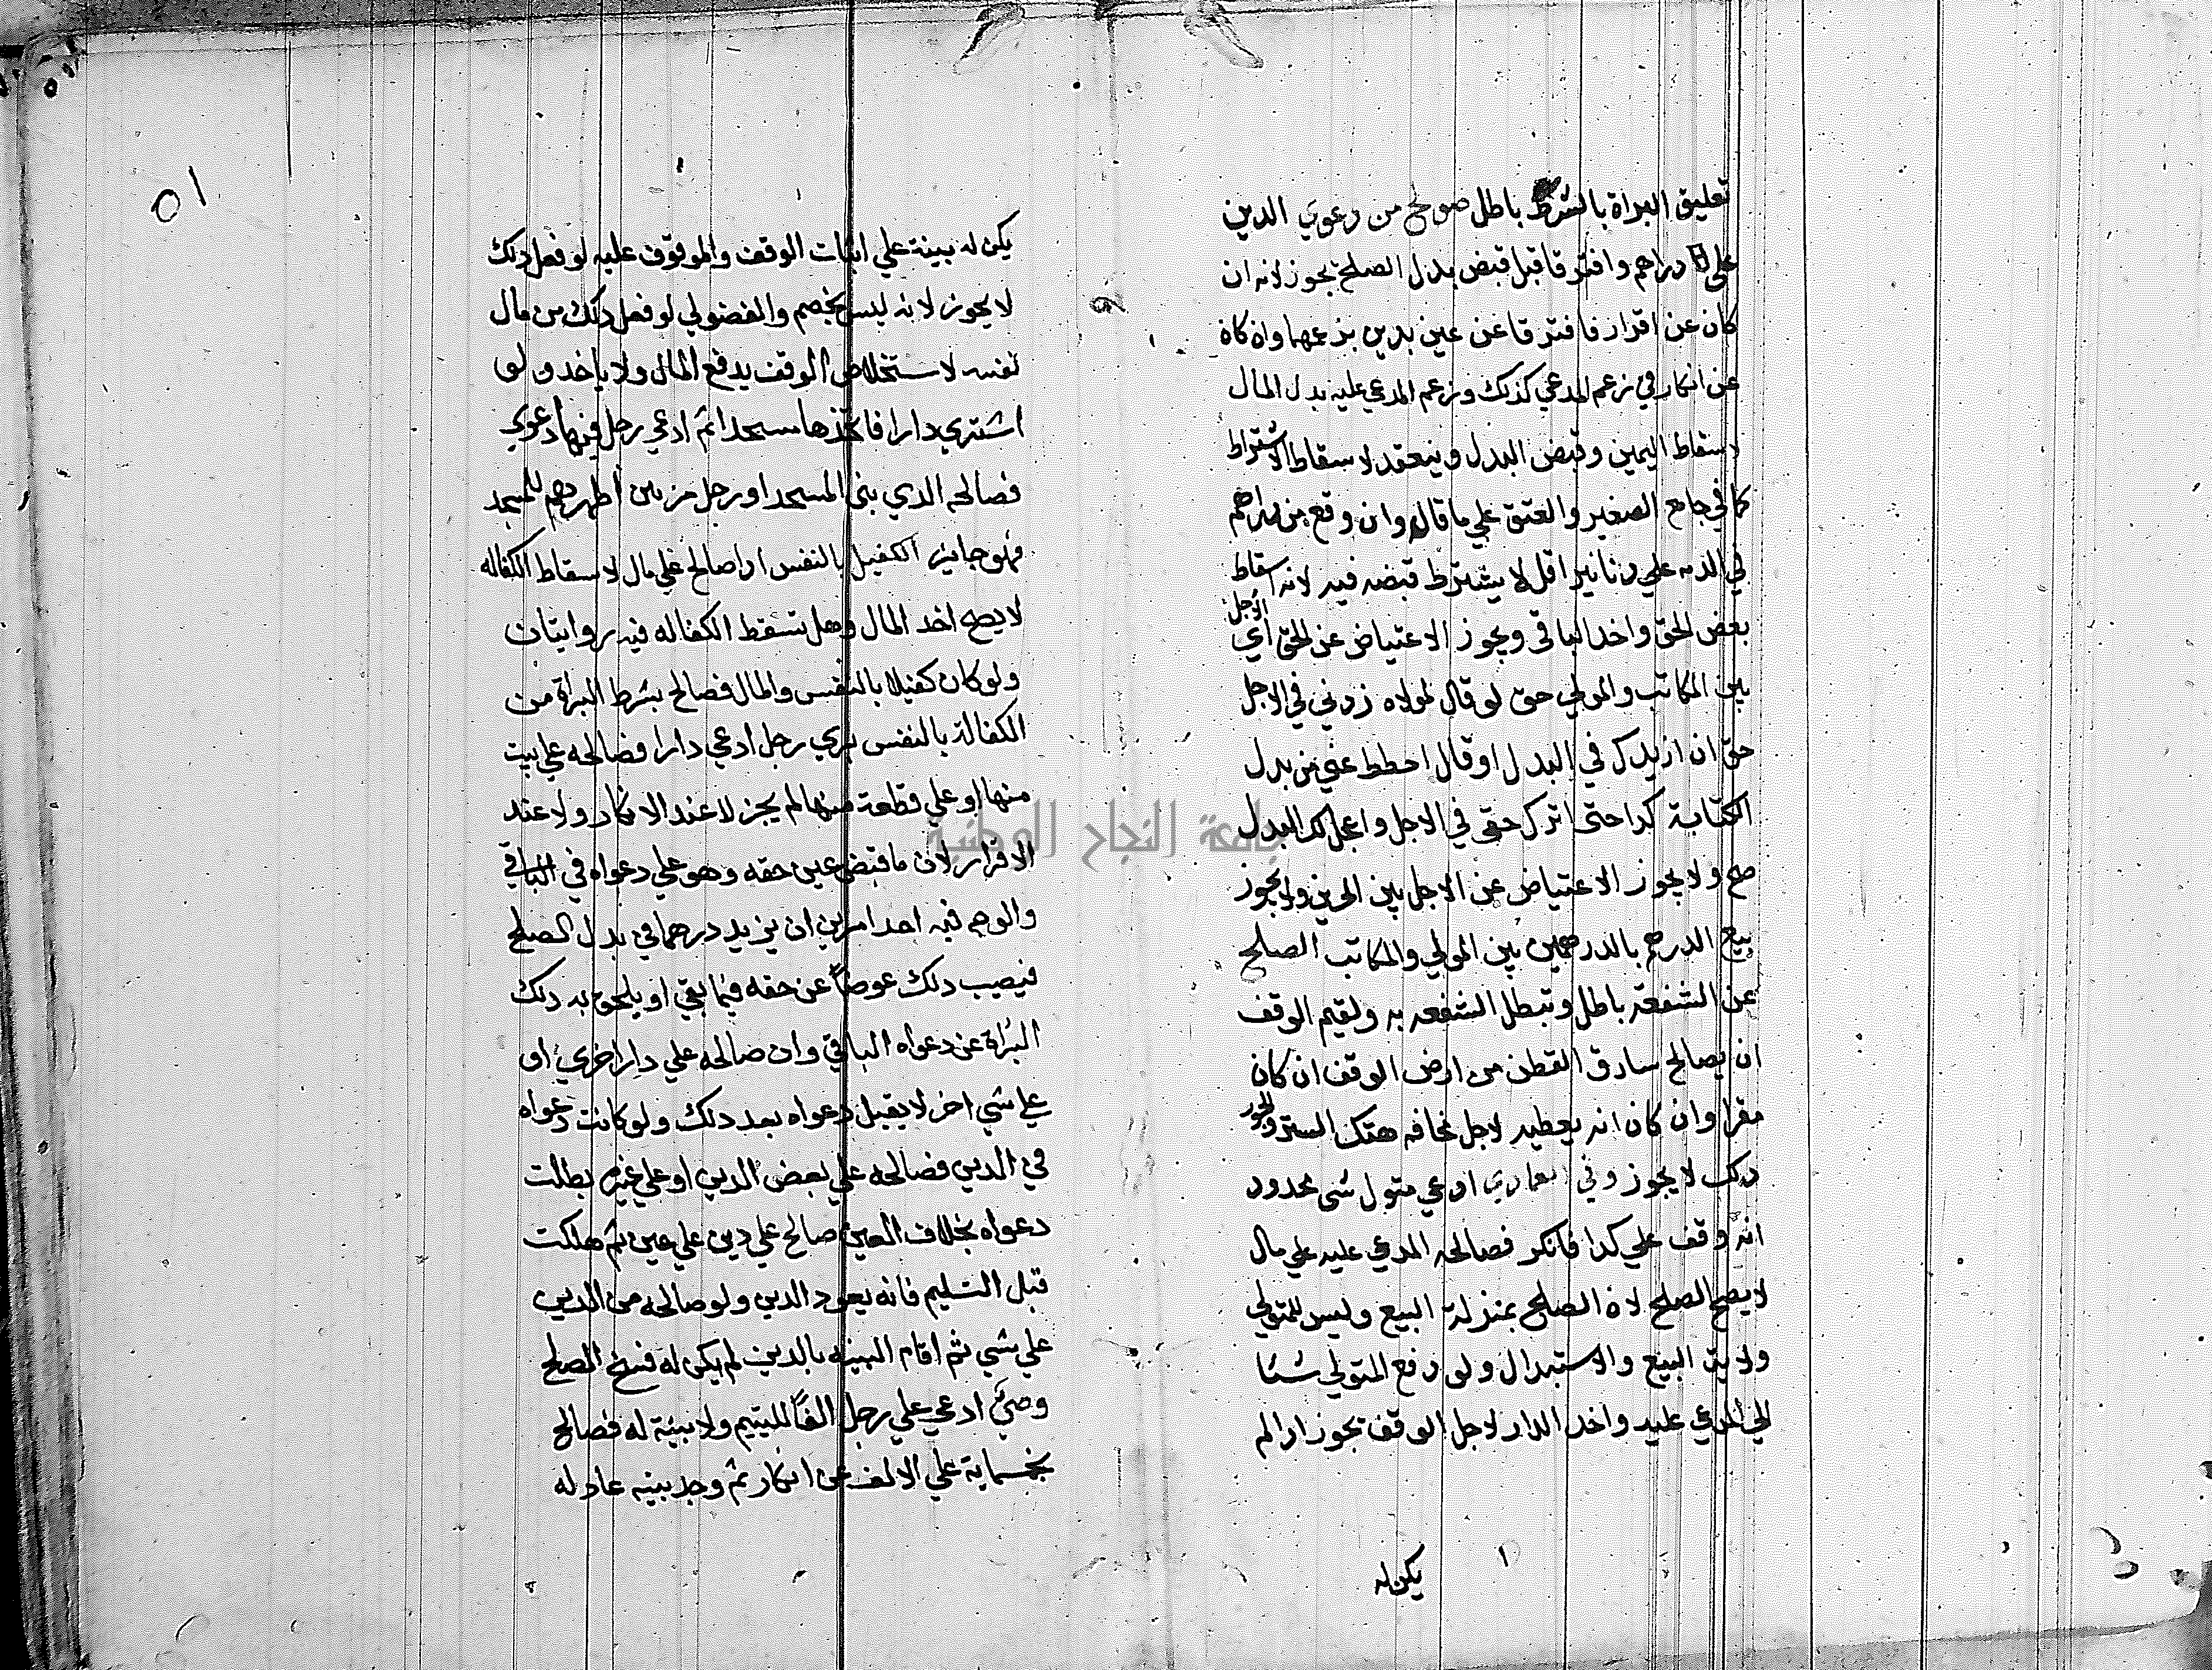 تعليق البراة بالشرط باطل صولح من دعوي الدين
على دراهم وافترقا قبل قبض بدل الصلح يجوز لانه ان
كان عن اقرار فافترقا عن عين بدين بزعمها وان كان
عن انكار في زعم المدعي كذلك وزعم المدعي عليه بدل المال
لاسقاط اليمين وقبض البدل وينعقد لاسقاط الاشتراط
كما في جامع الصغير والعتق علي ما قال وان وقع من دراهم
في الذمه علي دنانير اقل لا يشترط قبضه فيه لانه اسقاط
بعض الحق واخد الباقي ويجوز الاعتياض عن الحق اي الاجل
بين المكاتب والمولي حتى لو قال لمولاه زدني في الاجل
حتى ان ازيدك في البدل او قال احطط عني من بدل
الكتابة كدا حتى اترك حقي في الاجل واعجل لك البدل
صح ولا يجوز الاعتياض عن الاجل بين الحرين ويجوز
بيع الدرهم بالدرهمين بين المولي والمكاتب الصلح
عن الشفعة باطل وتبطل الشفعه به ولقيم الوقف
ان يصالح سارق القطن من ارض الوقف ان كان
مقرا وان كان انه يعطيه لاجل مخافه هتك الستر
دلك لا يجوز وفي ادعي متولي شي محدود
انه وقف علي كدا فانكر فصالحه المدعي عليه علي مال
لا يصح الصلح لان الصلح بمنزلة البيع وليس للمتولي
ولاية البيع والاستبدال ولو دفع المتولي شئا
الي المدعي عليه واخد الدار لاجل الوقف تجوز ادا لم
يكن له
يكن له بينة علي اثبات الوقف والموقوف عليه لو فعل دلك
لا يجوز لانه ليس بخصم والفضولي لو فعل دلك من مال
نفسه لاستخلاص الوقف يدفع المال ولا ياخد ولو
اشتري دارا فاتخذها مسجدا ثم ادعي رجل فيها دعوي
فصالحه الدي بنى المسجد او رجل من بين اظهرهم للمسجد
فهو جايز الكفيل بالنفس ادا صالح علي مال لاسقاط الكفاله
لا يصح اخد المال وهل تسقط الكفاله فيه روايتان
ولو كان كفيلا بالنفس والمال فصالح بشرط البراة من
الكفالة بالنفس بري رجل ادعي دارا فصالحه علي بيت
منها او علي قطعة منها لم يجز لا عند الانكار ولا عند
الاقرار لان ما قبض عين حقه وهو علي دعواه في الباقي
والوجه فيه احد امرين ان يزيد درهما في بدل الصلح
فيصيب دلك عوضاً عن حقه فيما بقي او يلحق به دلك
البراة عن دعواه الباقي وان صالحه علي دار اخري او
علي شي اخر لا يقبل دعواه بعد دلك ولو كانت دعواه
في الدين فصالحه علي بعض الدين او علي غيره بطلت
دعواه بخلاف العين صالح علي دين علي عين ثم هلكت
قبل التسليم فانه يعود الدين ولو صالحه من الدين
علي شي ثم اقام البينه بالدين لم يكن له فسخ الصلح
وصيٌ ادعي علي رجل الفاً لليتيم ولا بينة له فصالح
بخمسماية علي الالف عن انكار ثم وجد بينه عادله